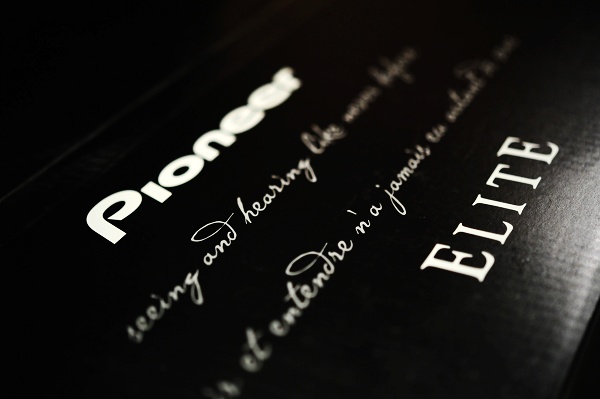 Pioneer
seeing and hearing like never before
et entendre n'a jamais
ELITE